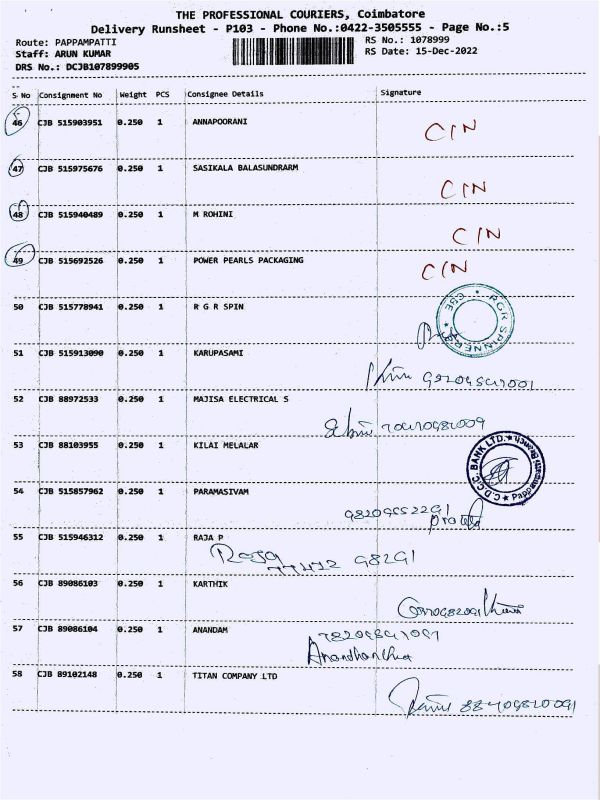 THE PROFESSIONAL COURIERS, Coimbatore
Delivery Runsheet - P103 - Phone No.:0422-3505555 - Page No.:5
Route: PAPPAMPATTI
Staff: ARUN KUMAR
DRS No.: DCJB107899905
RS No.: 1078999
RS Date: 15-Dec-2022
S No Consignment No Weight PCS Consignee Details Signature
46 CJB 515903951 0.250 1 ANNAPOORANI C/N
47 CJB 515975676 0.250 1 SASIKALA BALASUNDRARM C/N
48 CJB 515940489 0.250 1 M ROHINI C/N
49 CJB 515692526 0.250 1 POWER PEARLS PACKAGING C/N
50 CJB 515778941 0.250 1 R G R SPIN
RGR SPINNERS CBE
51 CJB 515913090 0.250 1 KARUPASAMI
52 CJB 88972533 0.250 1 MAJISA ELECTRICAL S
53 CJB 88103955 0.250 1 KILAI MELALAR
C.D.C.C. BANK LTD.
54 CJB 515857962 0.250 1 PARAMASIVAM
55 CJB 515946312 0.250 1 RAJA P
56 CJB 89086103 0.250 1 KARTHIK
57 CJB 89086104 0.250 1 ANANDAM
58 CJB 89102148 0.250 1 TITAN COMPANY LTD